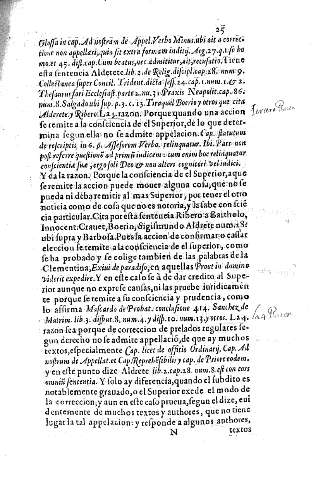 25
Glossa in cap. Ad nostram de Appel. Verbo Minus. ubi ait a correc-
tione non appellari, quis sit extra formam inditij. Aeg. 27. q. 1. so ho
mo. et 45. dist. cap. Cum beatus, vec admittitur, ait, recusatio. Tiene
esta sentencia Aldrete. lib. 2. de Relig. discipl. cap. 28. num 9.
Collectanea super Concil. Trident. dicta sess. 24. cap. 1. n. 6 7 2.
Thesaurus fori Ecclesiast. part 2. nu. 73. Praxis Neapolit. cap. 86.
num. 8. Salgado ubi sup. p. 3. c. 13. Tiraquel Boerio y otros que cita
Alderete, y Ribero. La 3. razon. Porque quando vna accion
se remite a la consciencia de el Superior, de lo que deter-
mina segun ella no se admite apelacion. Cap. statutum
de rescriptis, in 6. §. Assessorem Verbo. relinquatur. Ibi. Pars non
post referre questionẽ ad primũ iudicem: tum enim hoc relinquatur
conscientiæ suæ, ergo soli Deo & non alteri cognitori reliudicij.
Y da la razon. Porque la consciencia de el Superior, a que
se remite la accion puede mouer alguna cosa, que no se
pueda ni deba remitir al mas Superior, por tener el otro
noticia como de cosa que no es notoria, y la sabe con sciẽ
cia particular. Cita por esta sentẽcia Ribero a Bartholo,
Innocent. Crauet, Boerio, Sigismundo Aldrete num. 18
ubi supra y Barbosa. Pues la accion de confirmar o casar
eleccion se remite a la consciencia de el superior, como
se ha probado y se colige tambien de las palabras de la
Clementina, Exiui de paradiso, en aquellas Prout in domino
viderit expedire. Y en este caso se à de dar credito al Supe-
rior aunque no exprese causas, ni las pruebe iuridicamẽ
te porque se remite a su consciencia y prudencia, como
lo affirma Mascardo de Probat. conclusione 414. Sanchez de
Matrim. lib. 3. disput. 8. num. 4. y disp. 10. num. 13. y otros. La 4.
razon sea porque de correccion de prelados regulares se-
gun derecho no se admite appellació, de que ay muchos
textos, especialmente Cap. licet de offitio Ordinarij, Cap. Ad
nostram de Appellat. et Cap. Reprehẽsibilis y cap. de Priore eodem.
y en este punto dize Aldrete lib. 2. cap. 28. num. 8. est con coes
omniũ sentencia. Y solo ay diferencia, quando el subdito es
notablemente grauado, o el Superior excede el modo de
la correccion, y aun en este caso prueua, segun el dize, eui
dentemente de muchos textos y authores, que no tiene
lugar la tal appelacion: y responde a algunos authores,
N textos